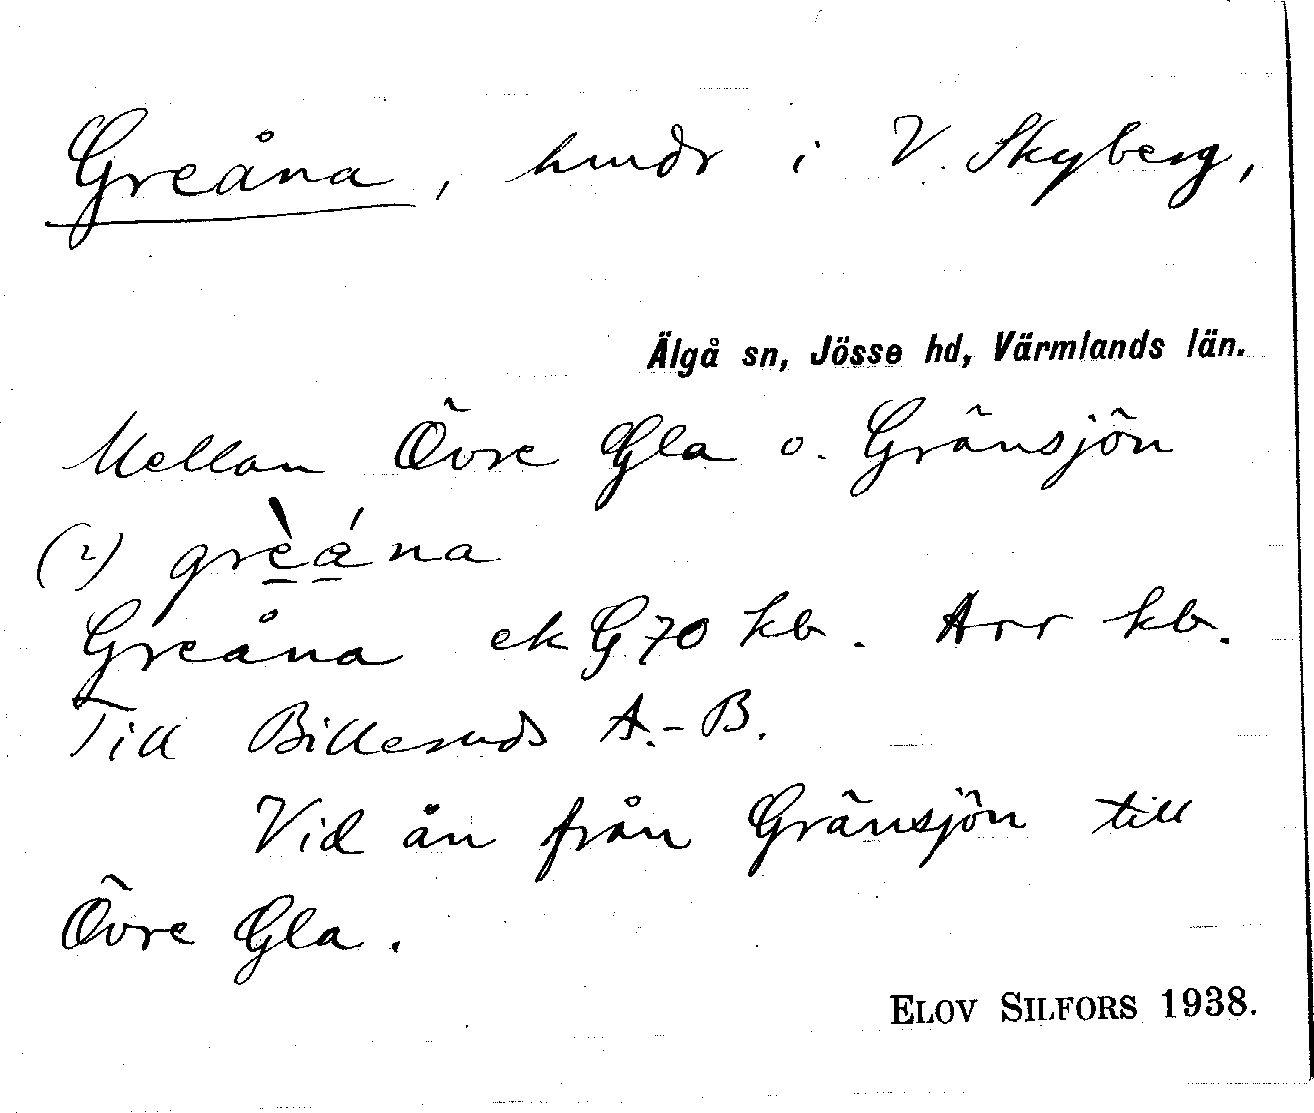 Greåna, hmdr i V. Skyberg,
Älgå sn, Jösse hd, Värmlands län.
Mellan Övre Gla o. Gränsjön
(2) grèána
Greåna ek G 70 kb. Arr kb.
Till Billeruds A.-B.
Vid ån från Gränsjön till
Övre Gla.
ELOV SILFORS 1938.